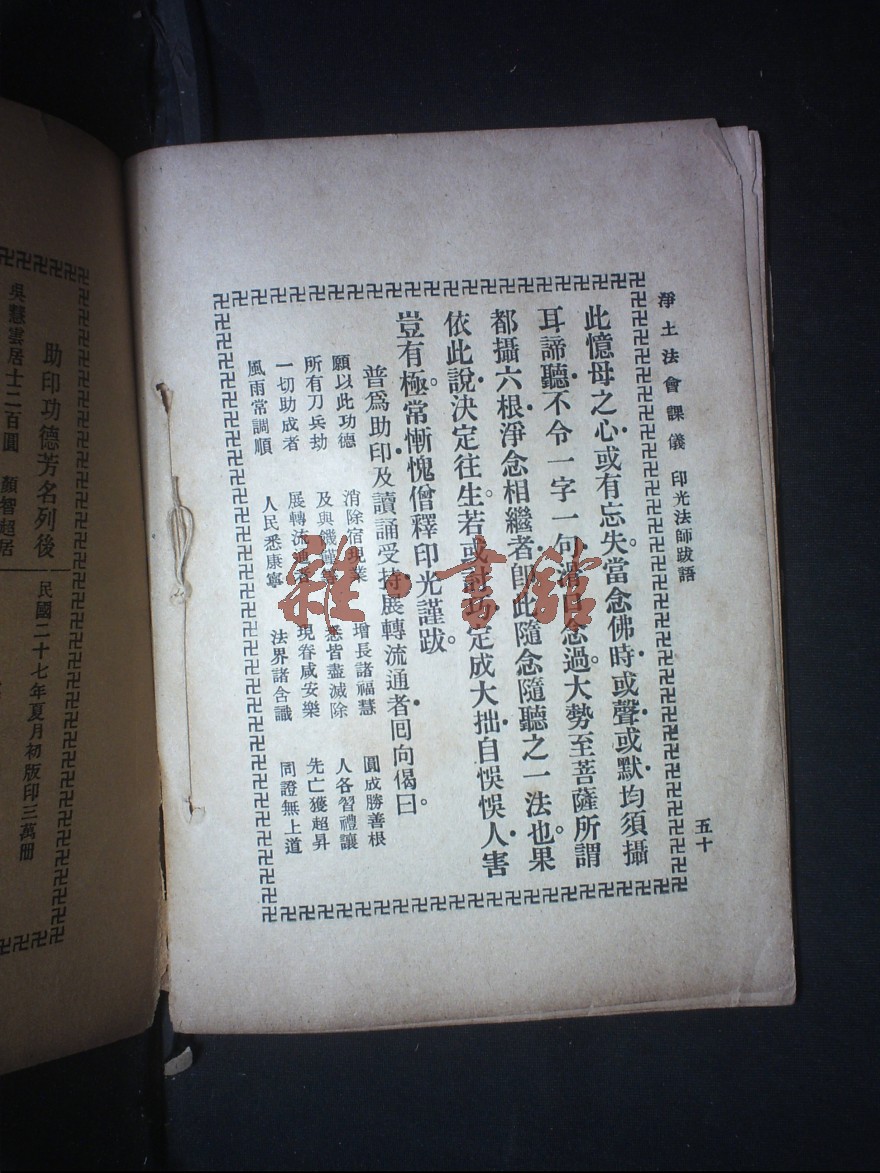 淨土法會課儀 印光法師跋語
五十
此憶母之心。或有忘失。當念佛時。或聲。或默。均須攝
耳諦聽。不令一字一句滑口念過。大勢至菩薩所謂
都攝六根。淨念相繼者。卽此隨念隨聽之一法也。果
依此說。決定往生。若或討巧。定成大拙。自悞悞人。害
豈有極。常慚愧僧釋印光謹跋。
普爲助印及讀誦受持展轉流通者囘向偈曰。
願以此功德 消除宿現業 增長諸福慧 圓成勝善根
所有刀兵劫 及與饑饉等 悉皆盡滅除 人各習禮讓
一切助成者 展轉流通者 現眷咸安樂 先亡獲超昇
風雨常調順 人民悉康寧 法界諸含識 同證無上道
雜·書館
助印功德芳名列後
吳慧雲居士二百圓 顏智超居
民國二十七年夏月初版印三萬册